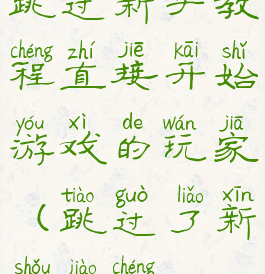 跳过新手教
chéng zhí jiē kāi shǐ
程直接开始
yóu xì de wán jiā
游戏的玩家
tiào guò liǎo xīn
（跳过了新
shǒu jiào chéng